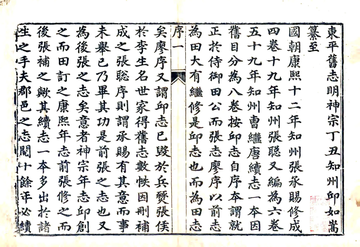 東平舊志明神宗丁丑知州邱如嵩
纂至
國朝康熙十二年知州張承賜修成
四卷十九年知州張聰又編為六卷
五十九年知州曹繼唐續志一本因
舊目分為八卷按邱志自序本謂就
正於侍御田公而張志廖序以前志
為田大有繼修是邱志也而為田志
序一
矣廖序又謂邱志已毀於兵燹張侯
於李生名世家得舊志數帙因刪補
成之張聰序則謂承賜有其意而事
未舉已乃畢其功是前張之志也又
為後張之志矣意者神宗年志邱創
之而田訂之康熙年志前張修之而
後張補之歟其續志一本多出於諸
生之手夫郡邑之志閱十餘年必續